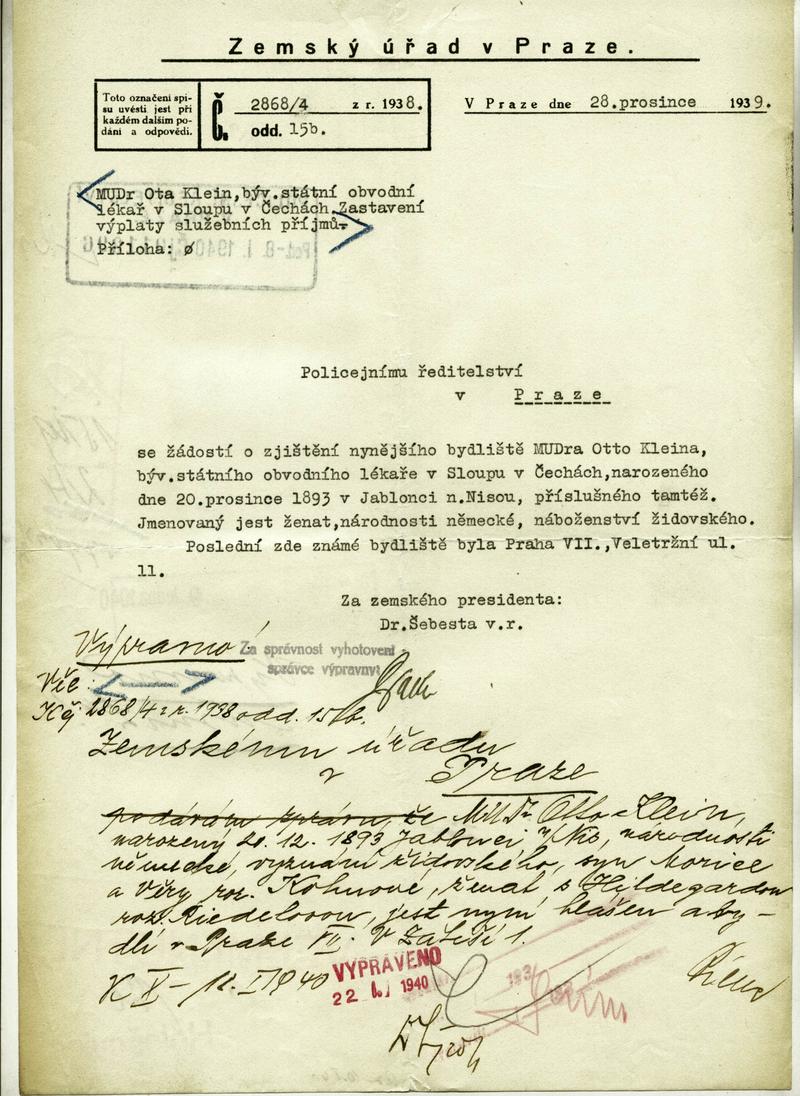 Zemský úřad v Praze.
Toto označení spi-
su uvésti jest při
každém dalším po-
dání a odpovědi.
Č. 2868/4 z r. 1938.
odd. 15b.
V Praze dne 28.prosince 1939.
MUDr Ota Klein,býv.státní obvodní
lékař v Sloupu v Čechách.Zastavení
výplaty služebních příjmů.
Příloha: ø
Policejnímu ředitelství
v Praze
se žádostí o zjištění nynějšího bydliště MUDra Otto Kleina,
býv.státního obvodního lékaře v Sloupu v Čechách,narozeného
dne 20.prosince 1893 v Jablonci n.Nisou, příslušného tamtéž.
Jmenovaný jest ženat,národnosti německé, náboženství židovského.
Poslední zde známé bydliště byla Praha VII.,Veletržní ul.
11.
Za zemského presidenta:
Dr.Šebesta v.r.
Za správnost vyhotovení
správce výpravny:
Věc:
2868/4 z r. 1938 odd. 15b.
Zemskému úřadu
v Praze
podávám zprávu, že MUDr Otto Klein,
narozený 20.12.1893 Jablonci n/Nis, národnosti
německé, vyznání židovského, syn Morice
a Věry roz. Kohnové, ženat s Hildegardou
roz. Riedelovou, jest nyní hlášen a by-
dlí v Praze VII. V Zátiší 1.
12. I 1940
VYPRAVENO
22 I 1940